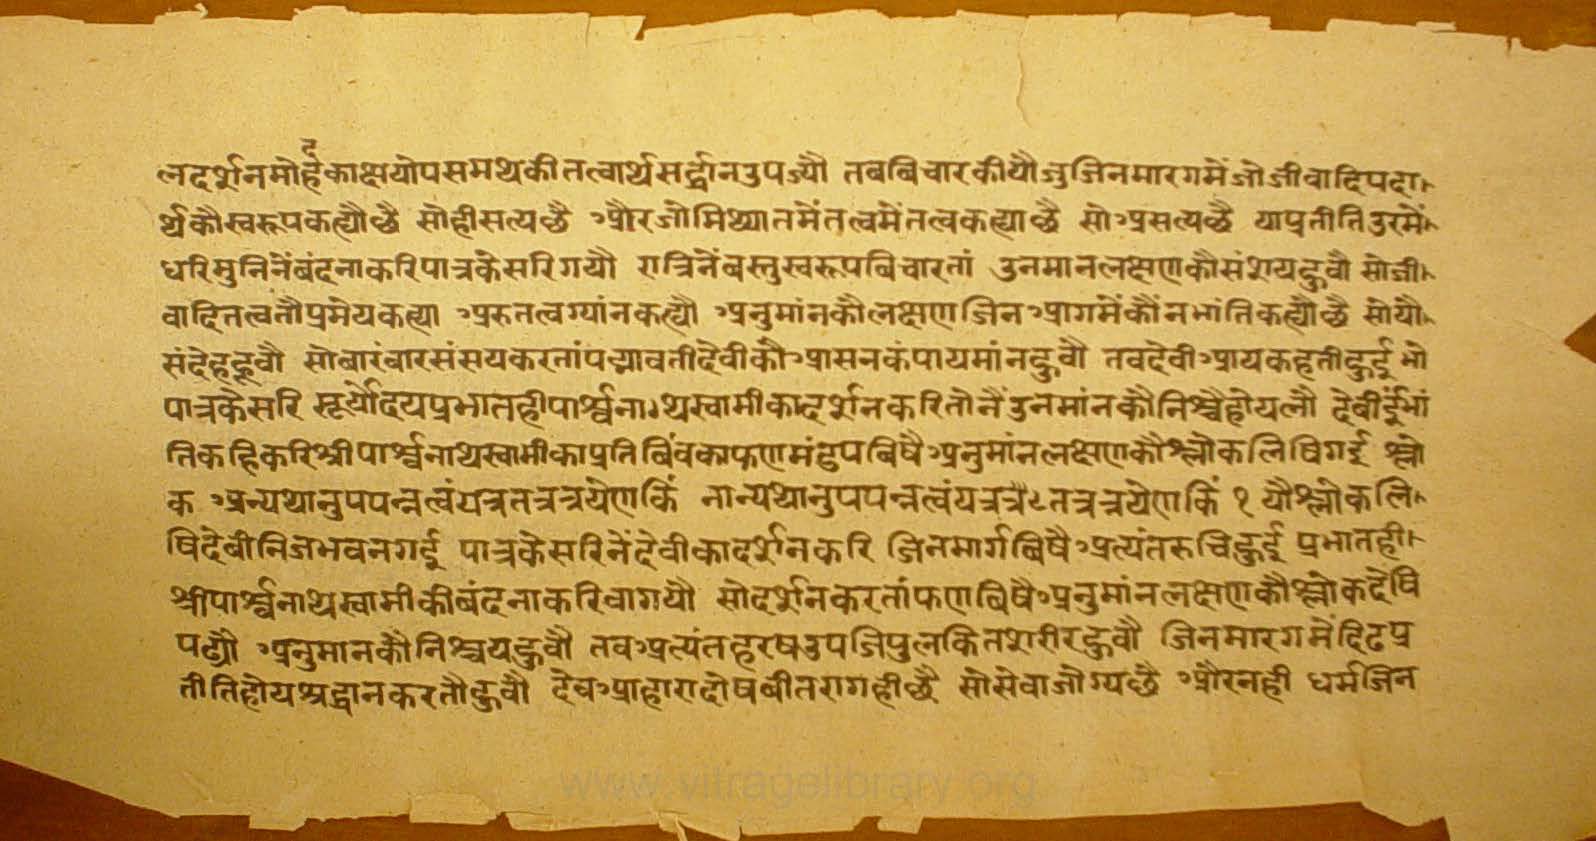 लदर्शनमोहकाक्षयोपसमथकीतत्वार्थसर्द्धानउपज्यौ तबबिचारकीयौजुजिनमारगमेंजोजीवादिपदा
र्थकौस्वरूपकह्यौछै सोहीसत्यछै औरजोमिथ्यातमेंतत्वमेंतत्वकह्याछै सोअसत्यछै याप्रतीतिउरमें
धरिमुनिनेंबंदनाकरिपात्रकेसरिगयौ रात्रिनेंबस्तुस्वरूपबिचारतां उनमानलक्षणकौसंशयहुवौ सोजी
वादितत्वतौप्रमेयकह्या अरुतत्वग्यांनकह्यौ अनुमांनकौलक्षणजिनआगमेंकौंनभांतिकह्यौछै सोयौ
संदेहहूवौ सोबारंबारसंसयकरतांपद्मावतीदेवीकौआसनकंपायमांनहुवौ तवदेवीआयकहतीहुई भो
पात्रकेसरि सूर्योदयप्रभातहीपार्श्वनाथस्वामीकादर्शनकरितोनैंउनमांनकौनिश्चैहोयलौ देबीईंभां
तिकहिकरिश्रीपार्श्वनाथस्वामीकाप्रतिबिंवकाफणमंडपबिषैअनुमांनलक्षणकौश्लोकलिषिगई श्लो
क अन्यथानुपपन्नत्वंयत्रतत्रत्रयेणकिं नान्यथानुपपन्नत्वंयत्रतत्रत्रयेणकिं १ यौश्लोकलि
षिदेबीनिजभवनगई पात्रकेसरिनेंदेवीकादर्शनकरि जिनमार्गबिषैअत्यंतरुचिहुई प्रभातही
श्रीपार्श्वनाथस्वामीकीबंदनाकरिवागयौ सोदर्शनकरतांफणबिषैअनुमांनलक्षणकौश्लोकदेषि
पढ्यौ अनुमानकौनिश्चयहुवौ तवअत्यंतहरषउपजिपुलकितशरीरहुवौ जिनमारगमेंदिढप्र
तीतिहोयश्रद्धानकरतौहुवौ देवआहारादोषबीतरागहीछै सोसेवाजोग्यछै औरनही धर्मजिन
www.vitragelibrary.org